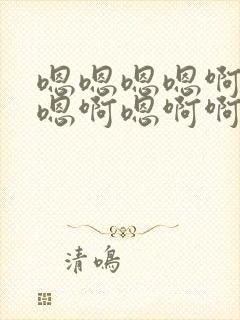 嗯嗯嗯嗯啊
嗯啊嗯啊啊
清鸣